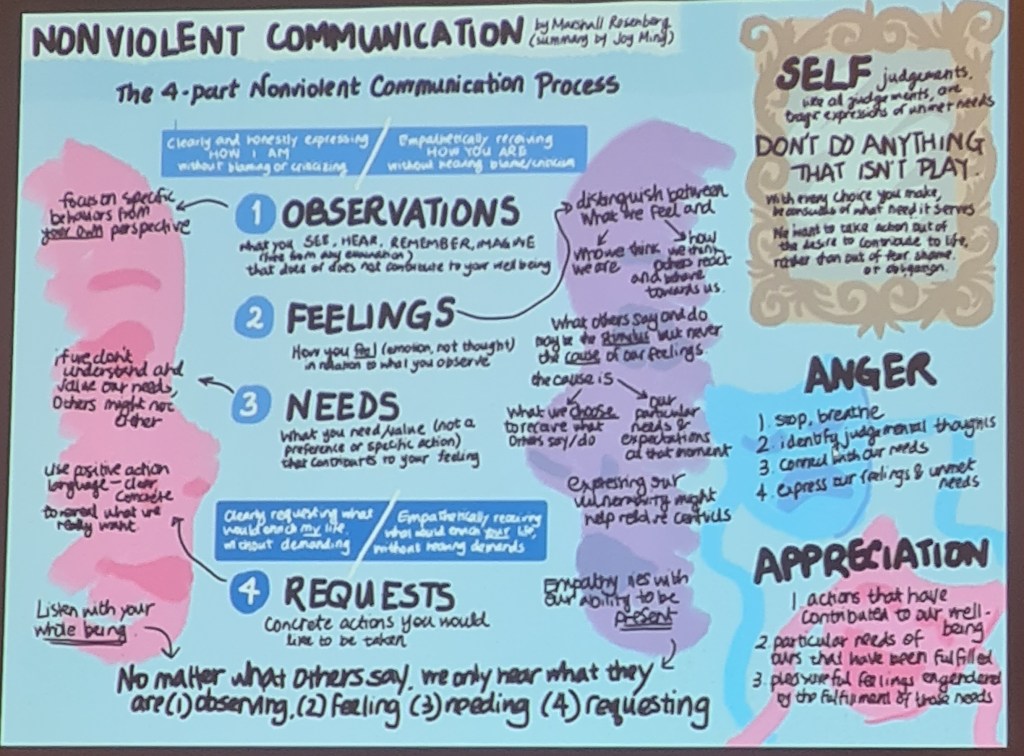 NONVIOLENT COMMUNICATION
by Marshall Rosenberg
(summary by Joy Ming)
The 4-part Nonviolent Communication Process
Clearly and honestly expressing
HOW I AM
without blaming or criticizing
Empathetically receiving
HOW YOU ARE
without hearing blame/criticism
1 OBSERVATIONS
what you SEE, HEAR, REMEMBER, IMAGINE
(free from any evaluation)
that does or does not contribute to your well being
focus on specific
behaviors from
your own perspective
2 FEELINGS
How you feel (emotion, not thought)
in relation to what you observe
distinguish between
what we feel and
who we think
we are
how
we think
others react
and behave
towards us.
What others say and do
may be the stimulus but never
the cause of our feelings.
the cause is
what we choose
to receive what
others say/do
our
particular
needs &
expectations
at that moment
expressing our
vulnerability might
help resolve conflicts
3 NEEDS
What you need/value (not a
preference or specific action)
that contributes to your feeling
if we don't
understand and
value our needs,
Others might not
either
Clearly requesting what
would enrich my life,
without demanding
Empathetically receiving
what would enrich your life,
without hearing demands
4 REQUESTS
Concrete actions you would
like to be taken
use positive action
language - clear,
concrete
to reveal what we
really want
Listen with your
whole being
Empathy lies with
our ability to be
present
No matter what others say, we only hear what they
are (1) observing, (2) feeling (3) needing (4) requesting
SELF judgements,
like all judgements, are
tragic expressions of unmet needs
DON'T DO ANYTHING
THAT ISN'T PLAY.
With every choice you make,
be conscious of what need it serves
We want to take action out of
the desire to contribute to life,
rather than out of fear, shame,
or obligation.
ANGER
1. stop, breathe
2. identify judgemental thoughts
3. connect with our needs
4. express our feelings & unmet
needs
APPRECIATION
1. actions that have
contributed to our well-
being
2. particular needs of
ours that have been fulfilled
3. pleasureful feelings engendered
by the fulfillment of those needs